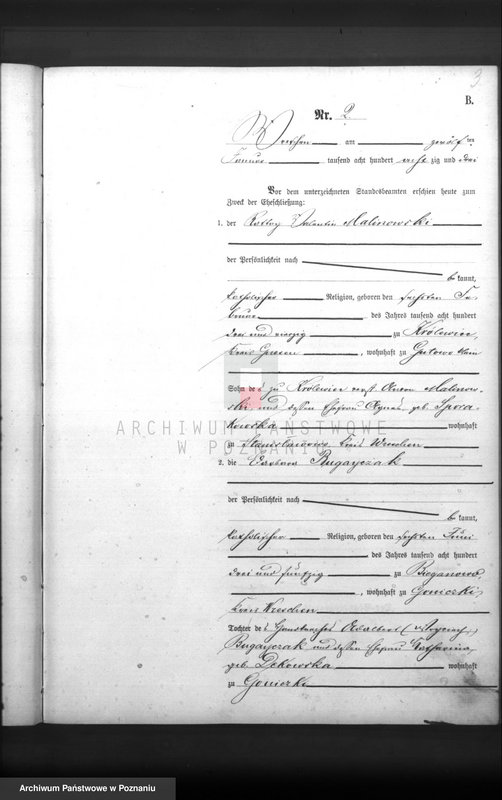 3
B.
Nr. 2
Wreschen am zwölf ten
Januar tausend acht hundert acht zig und drei
Vor dem unterzeichneten Standesbeamten erschien heute zum
Zweck der Eheschließung:
1. der Valentin Malinowski
der Persönlichkeit nach
be kannt,
katholischer Religion, geboren den sechsten Fe-
bruar des Jahres tausend acht hundert
drei und vierzig zu Królewiec,
Kreis Gnesen, wohnhaft zu Gutowo klein
Sohn des zu Królewiec verst. Anton Malinow-
ski und dessen Ehefrau Agnes, geb.
wohnhaft
zu Stanislawowo Kreis Wreschen
2. die Barbara Bugayczak
der Persönlichkeit nach
be kannt,
katholischer Religion, geboren den sechsten Juni
des Jahres tausend acht hundert
drei und fünfzig zu Bieganowo,
, wohnhaft zu Goniczki,
Kreis Wreschen
Tochter des Adalbert (Woyciech)
Bugayczak und dessen Ehefrau Katharina,
geb. Dekowska wohnhaft
zu Goniczki
ARCHIWUM PAŃSTWOWE
W POZNANIU
Archiwum Państwowe w Poznaniu